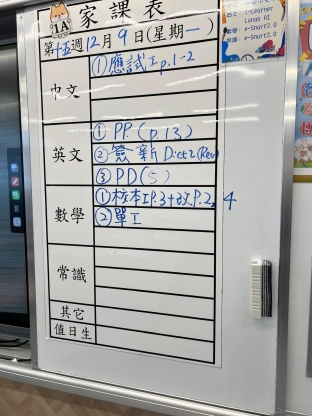 1A 家課表
第十五週12月9日(星期一)
中文
①應試工p.1-2
英文
①PP(p.13)
②簽新Dict2(Rev)
③PD(5)
數學
①校本工P.3+改P.2, 4
②單工
常識
其它
值日生
e-Learner
Lungo AI
e-Smart2.0
e-Smart2.0